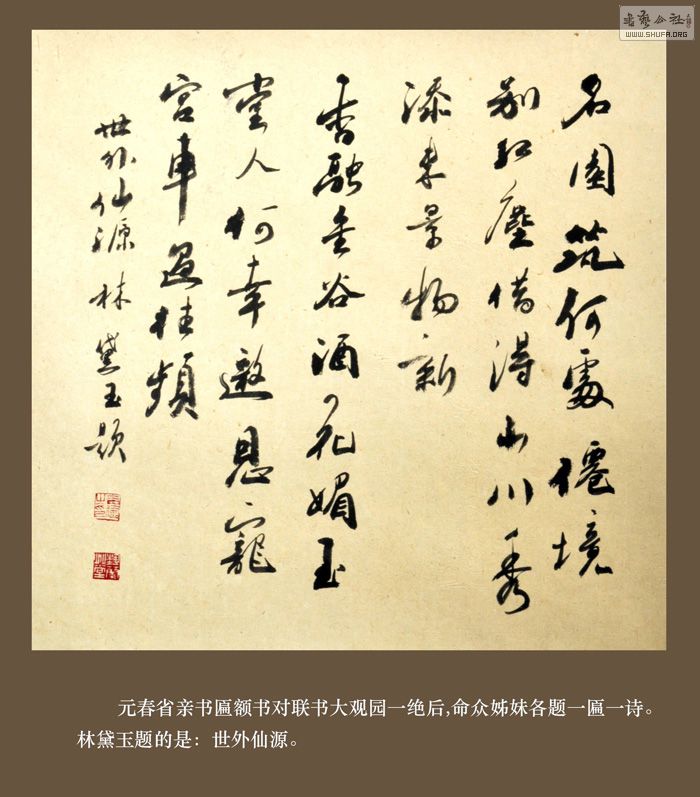 書藝公社
WWW.SHUFA.ORG
名園筑何處僊境
别红塵借得山川秀
添来景物新
香融金谷酒花媚玉
堂人何幸邀恩寵
宫車過往頻
世外仙源林黛玉題
元春省亲书匾额书对联书大观园一绝后,命众姊妹各题一匾一诗。
林黛玉题的是：世外仙源。